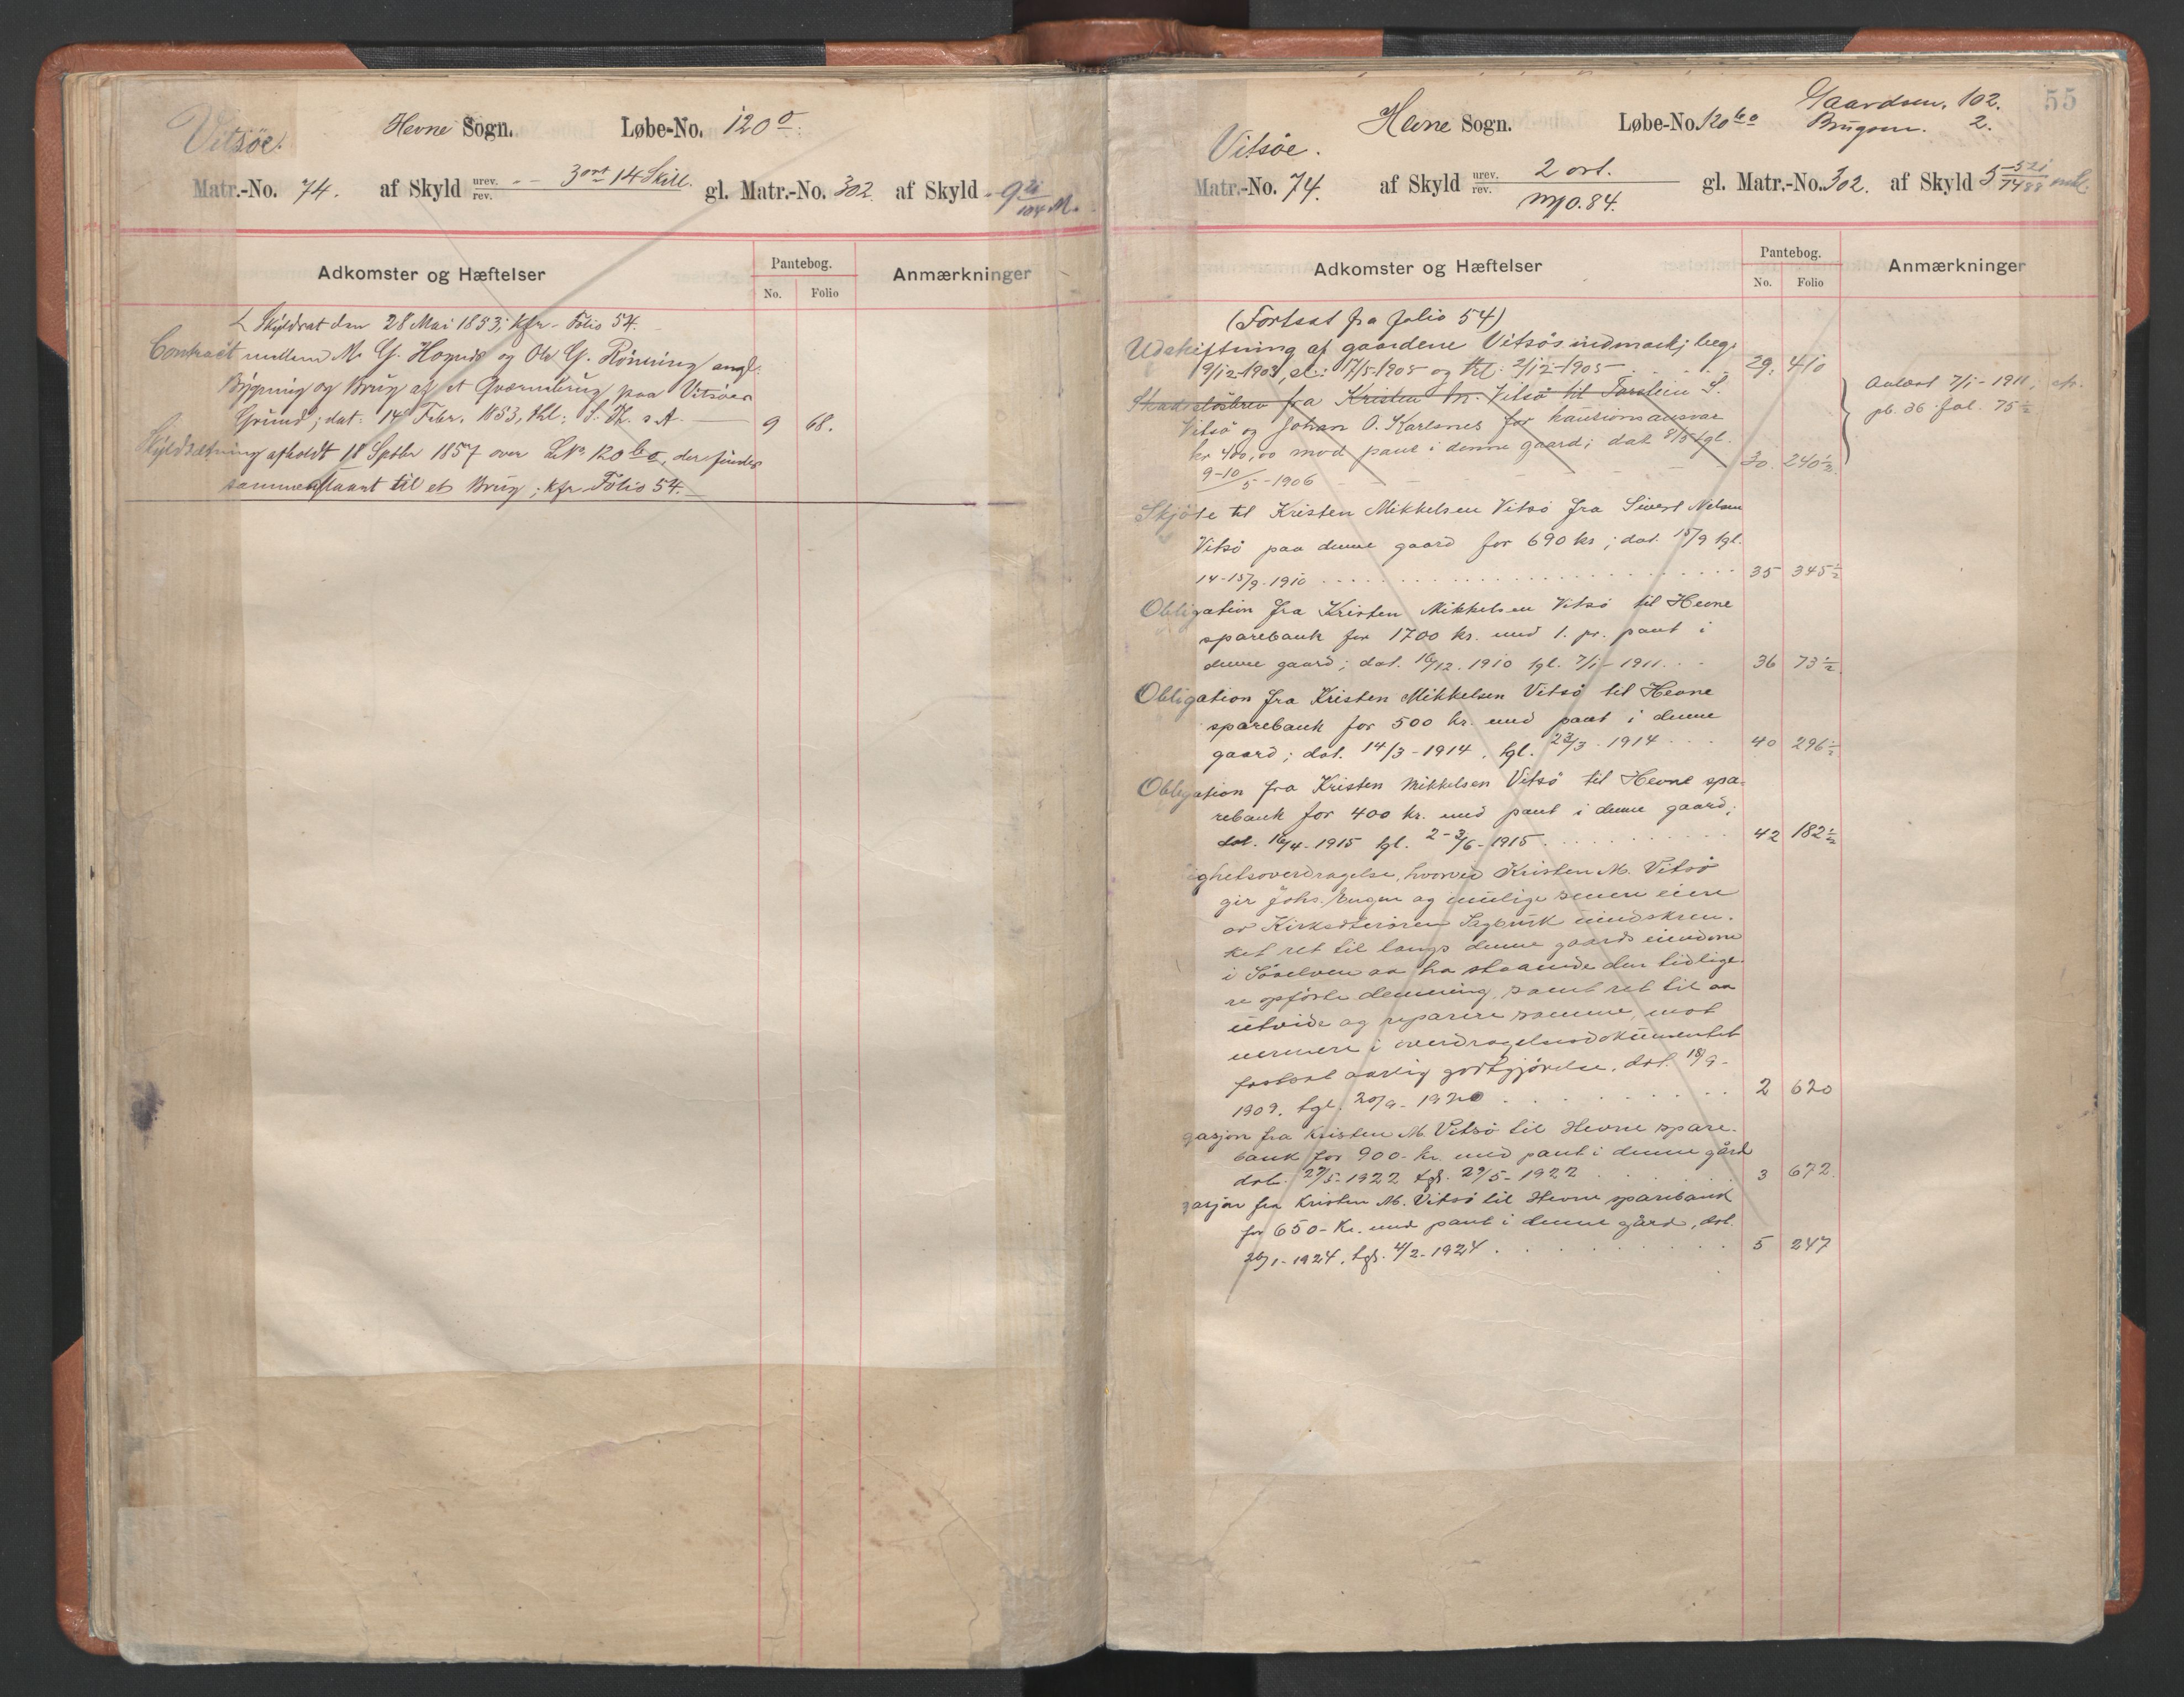 Vitsöe.
Hevne Sogn. Løbe-No. 120 a.
Matr.-No. 74. af Skyld urev. rev. -- 3 ort 14 Skill. gl. Matr.-No. 302. af Skyld
Adkomster og Hæftelser
Pantebog.
No. Folio
Anmærkninger
Skyldsat den 28 Mai 1853; kfr. Folio 54.
Contract mellem M. G. og Ole G. Rönning angl.
Bygning og Brug af et Qværnebrug paa Vitsöes
Grund; dat: 14 Febr. 1853, thl: S. Th. s. A. 9 68.
Skyldsætning afholdt 18 Septbr 1857 over LNo 120 b o, der findes
sammenslaaet til et Brug; kfr Folio 54.
55
Gaardsn. 102.
Brugsn. 2.
Hevne Sogn. Løbe-No. 120 b o
Vitsöe.
Matr.-No. 74. af Skyld urev. rev. 2 ort. gl. Matr.-No. 302. af Skyld 5
m 0.84.
Adkomster og Hæftelser
Pantebog.
No. Folio
Anmærkninger
(Fortsat fra folio 54)
Udskiftning af gaardene Vitsös indmark; beg.
9/12-1903, sl.: 17/5-1905 og thl: 2/12-1905 29. 410
Skadeslösbrev fra Kristen M. Vitsö til Torstein S.
Vitsö og Johan O. Karlsnes for kautionsansvar
kr 400,00 mod pant i denne gaard; dat 8/5 tgl.
9-10/5-1906 30. 240 1/2
Avlæst 7/1-1911; cfr.
pb. 36 fol. 75 1/2
Skjöte til Kristen Mikkelsen Vitsö fra Sivert Nilsen
Vitsö paa denne gaard for 690 kr; dat. 15/9 tgl.
14-15/9-1910 35 345 1/2
Obligation fra Kristen Mikkelsen Vitsö til Hevne
sparebank for 1700 kr. med 1. pr. pant i
denne gaard; dat. 16/12.1910 tgl. 7/1-1911. 36 73 1/2
Obligation fra Kristen Mikkelsen Vitsö til Hevne
sparebank for 500 kr. med pant i denne
gaard; dat. 14/3-1914. tgl. 23/3.1914 40 296 1/2
Obligation fra Kristen Mikkelsen Vitsö til Hevne spa-
rebank for 400 kr. med pant i denne gaard;
dat. 16/4-1915 tgl. 2-3/6-1915 42 182 1/2
ghetsoverdragelse, hvorved Kristen M. Vitsö
gir Johs. Engen og mulige senere eiere
av Kirksæterören uindskræn-
ket ret til langs denne gaards eiendom
i Söaelven aa ha staaende den tidlige-
re opförte demning, samt ret til aa
utvide og reparere samme, mot
nermere i overdragelsesdokumentet
fastsat aarlig godtgjörelse, dat. 18/9-
1909. tgl. 20/9-1920 2 620
gasjon fra Kristen M. Vitsö til Hevne spare-
bank for 900- kr. med pant i denne gård
dat. 29/5-1922 tgl. 29/5-1922 3 672
gasjon fra Kristen M. Vitsö til Hevne sparebank
for 650- kr. med pant i denne gård, dat.
26/1-1924, tgl. 4/2-1924 5 247